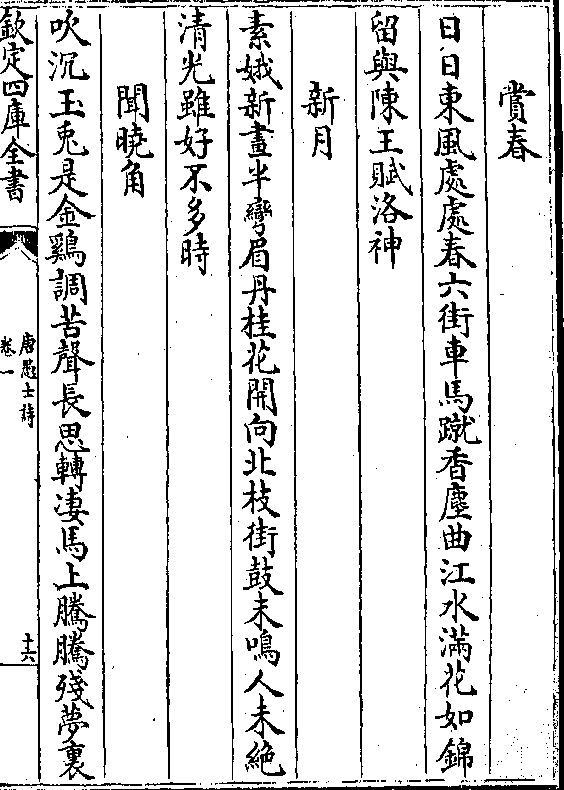 賞春
日日東風處處春六街車馬蹴香塵曲江水滿花如錦
留與陳王賦洛神
新月
素娥新畫半彎眉丹桂花開向北枝街鼓未鳴人未絶
清光雖好不多時
聞曉角
吹沉玉兎是金鷄調苦聲長思轉凄馬上騰騰殘夢裏
欽定四庫全書
唐愚士詩
卷一
十六